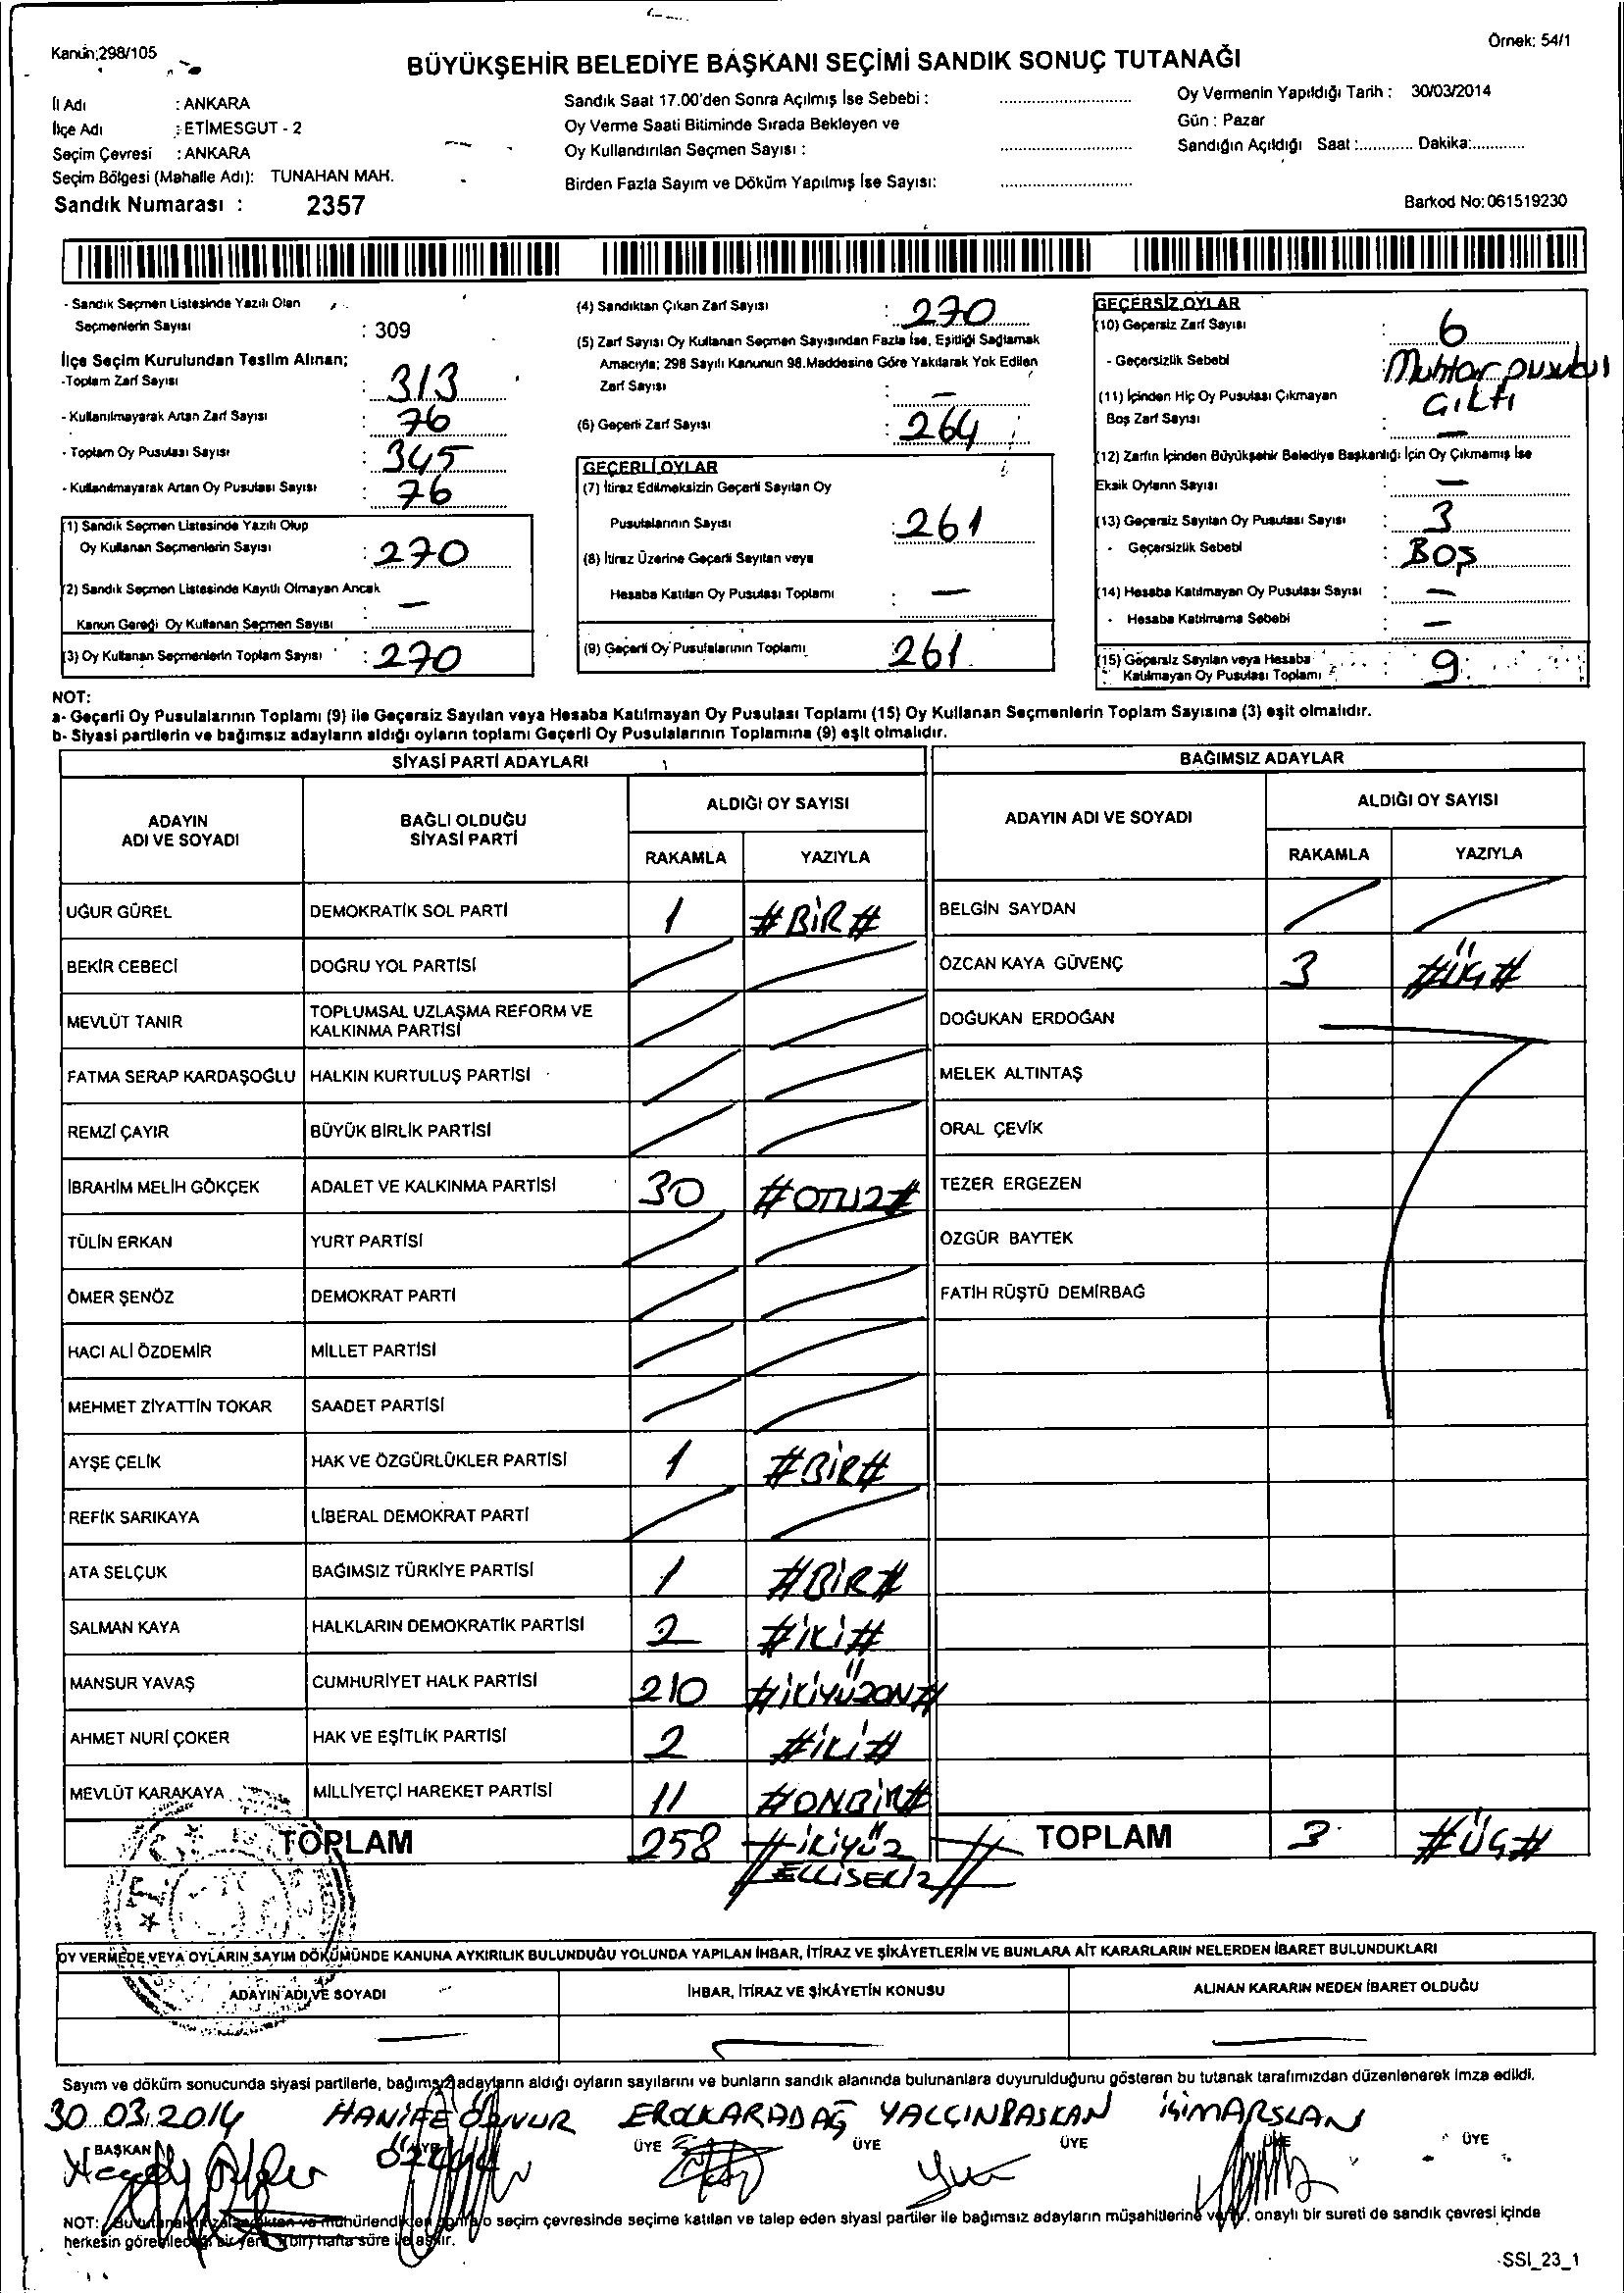 Kanun:298/105
Örnek: 54/1
BÜYÜKŞEHİR BELEDİYE BAŞKANI SEÇİMİ SANDIK SONUÇ TUTANAĞI
İl Adı : ANKARA
İlçe Adı : ETİMESGUT - 2
Seçim Çevresi : ANKARA
Seçim Bölgesi (Mahalle Adı): TUNAHAN MAH.
Sandık Numarası : 2357
Sandık Saat 17.00'den Sonra Açılmış İse Sebebi :
Oy Verme Saati Bitiminde Sırada Bekleyen ve
Oy Kullandırılan Seçmen Sayısı :
Birden Fazla Sayım ve Döküm Yapılmış İse Sayısı:
Oy Vermenin Yapıldığı Tarih : 30/03/2014
Gün : Pazar
Sandığın Açıldığı Saat :............ Dakika:............
Barkod No:061519230
- Sandık Seçmen Listesinde Yazılı Olan
Seçmenlerin Sayısı : 309
İlçe Seçim Kurulundan Teslim Alınan;
-Toplam Zarf Sayısı : 313
- Kullanılmayarak Artan Zarf Sayısı : 76
- Toplam Oy Pusulası Sayısı : 345
- Kullanılmayarak Artan Oy Pusulası Sayısı : 76
(1) Sandık Seçmen Listesinde Yazılı Olup
Oy Kullanan Seçmenlerin Sayısı : 270
(2) Sandık Seçmen Listesinde Kayıtlı Olmayan Ancak
Kanun Gereği Oy Kullanan Seçmen Sayısı : —
(3) Oy Kullanan Seçmenlerin Toplam Sayısı : 270
(4) Sandıktan Çıkan Zarf Sayısı : 270
(5) Zarf Sayısı Oy Kullanan Seçmen Sayısından Fazla İse, Eşitliği Sağlamak
Amacıyla; 298 Sayılı Kanunun 98.Maddesine Göre Yakılarak Yok Edilen
Zarf Sayısı : —
(6) Geçerli Zarf Sayısı : 264
GEÇERLİ OYLAR
(7) İtiraz Edilmeksizin Geçerli Sayılan Oy
Pusulalarının Sayısı : 261
(8) İtiraz Üzerine Geçerli Sayılan veya
Hesaba Katılan Oy Pusulası Toplamı : —
(9) Geçerli Oy Pusulalarının Toplamı 261
GEÇERSİZ OYLAR
(10) Geçersiz Zarf Sayısı : 6
- Geçersizlik Sebebi : Muhtar pusulası
ÇIKTI
(11) İçinden Hiç Oy Pusulası Çıkmayan
Boş Zarf Sayısı : —
(12) Zarfın İçinden Büyükşehir Belediye Başkanlığı İçin Oy Çıkmamış İse
Eksik Oyların Sayısı : —
(13) Geçersiz Sayılan Oy Pusulası Sayısı : 3
- Geçersizlik Sebebi : BOŞ
(14) Hesaba Katılmayan Oy Pusulası Sayısı : —
- Hesaba Katılmama Sebebi : —
(15) Geçersiz Sayılan veya Hesaba
Katılmayan Oy Pusulası Toplamı : 9
NOT:
a- Geçerli Oy Pusulalarının Toplamı (9) ile Geçersiz Sayılan veya Hesaba Katılmayan Oy Pusulası Toplamı (15) Oy Kullanan Seçmenlerin Toplam Sayısına (3) eşit olmalıdır.
b- Siyasi partilerin ve bağımsız adayların aldığı oyların toplamı Geçerli Oy Pusulalarının Toplamına (9) eşit olmalıdır.
SİYASİ PARTİ ADAYLARI
ADAYIN
ADI VE SOYADI
BAĞLI OLDUĞU
SİYASİ PARTİ
ALDIĞI OY SAYISI
RAKAMLA YAZIYLA
UĞUR GÜREL DEMOKRATİK SOL PARTİ 1 #BİR#
BEKİR CEBECİ DOĞRU YOL PARTİSİ
MEVLÜT TANIR TOPLUMSAL UZLAŞMA REFORM VE
KALKINMA PARTİSİ
FATMA SERAP KARDAŞOĞLU HALKIN KURTULUŞ PARTİSİ
REMZİ ÇAYIR BÜYÜK BİRLİK PARTİSİ
İBRAHİM MELİH GÖKÇEK ADALET VE KALKINMA PARTİSİ 30 #OTUZ#
TÜLİN ERKAN YURT PARTİSİ
ÖMER ŞENÖZ DEMOKRAT PARTİ
HACI ALİ ÖZDEMİR MİLLET PARTİSİ
MEHMET ZİYATTİN TOKAR SAADET PARTİSİ
AYŞE ÇELİK HAK VE ÖZGÜRLÜKLER PARTİSİ 1 #BİR#
REFİK SARIKAYA LİBERAL DEMOKRAT PARTİ
ATA SELÇUK BAĞIMSIZ TÜRKİYE PARTİSİ 1 #BİR#
SALMAN KAYA HALKLARIN DEMOKRATİK PARTİSİ 2 #İKİ#
MANSUR YAVAŞ CUMHURİYET HALK PARTİSİ 210 #İKİYÜZON#
AHMET NURİ ÇOKER HAK VE EŞİTLİK PARTİSİ 2 #İKİ#
MEVLÜT KARAKAYA MİLLİYETÇİ HAREKET PARTİSİ 11 #ONBİR#
TOPLAM 258 #İKİYÜZ
ELLİSEKİZ#
BAĞIMSIZ ADAYLAR
ADAYIN ADI VE SOYADI
ALDIĞI OY SAYISI
RAKAMLA YAZIYLA
BELGİN SAYDAN
ÖZCAN KAYA GÜVENÇ 3 #ÜÇ#
DOĞUKAN ERDOĞAN
MELEK ALTINTAŞ
ORAL ÇEVİK
TEZER ERGEZEN
ÖZGÜR BAYTEK
FATİH RÜŞTÜ DEMİRBAĞ
TOPLAM 3 #ÜÇ#
OY VERMEDE VEYA OYLARIN SAYIM DÖKÜMÜNDE KANUNA AYKIRILIK BULUNDUĞU YOLUNDA YAPILAN İHBAR, İTİRAZ VE ŞİKÂYETLERİN VE BUNLARA AİT KARARLARIN NELERDEN İBARET BULUNDUKLARI
ADAYIN ADI VE SOYADI İHBAR, İTİRAZ VE ŞİKÂYETİN KONUSU ALINAN KARARIN NEDEN İBARET OLDUĞU
Sayım ve döküm sonucunda siyasi partilerle, bağımsız adayların aldığı oyların sayılarını ve bunların sandık alanında bulunanlara duyurulduğunu gösteren bu tutanak tarafımızdan düzenlenerek imza edildi.
30.03.2014 HANİFE EROL KARADAĞ YALÇIN BAŞKAN ARSLAN
BAŞKAN ÜYE ÜYE ÜYE ÜYE ÜYE
NOT: Bu tutanak seçim çevresinde seçime katılan ve talep eden siyasi partiler ile bağımsız adayların müşahitlerine verilir, onaylı bir sureti de sandık çevresi içinde
herkesin görebileceği bir yere (bir) hafta süre ile asılır.
SSI_23_1